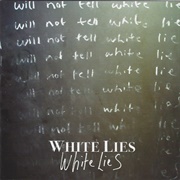 will not tell white lie
will not tell white lie
will not tell white lie
will not tell white lie
will not tell white lie
will not tell white lie
not tell white lie
will not tell white lie
WHITE LIES
White Lies